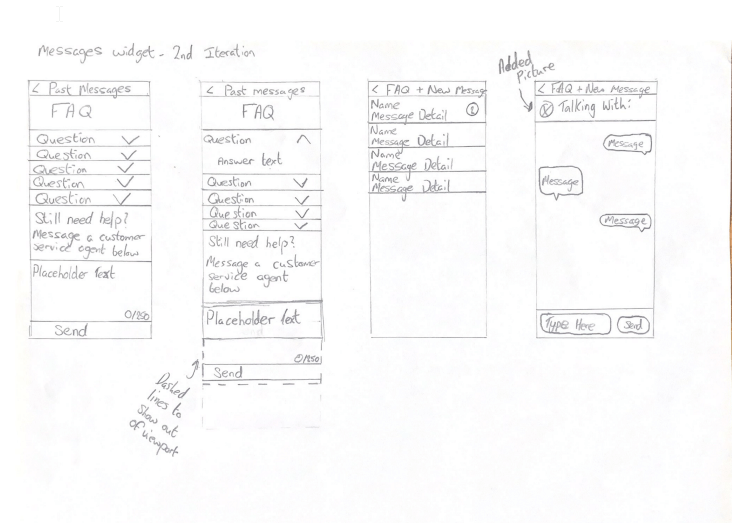 Messages widget - 2nd Iteration
< Past Messages
FAQ
Question
Question
Question
Question
Question
Still need help?
Message a customer
service agent below
Placeholder text
0/250
Send
< Past messages
FAQ
Question
Answer text
Question
Question
Question
Question
Still need help?
Message a customer
service agent
below
Placeholder text
0/250
Send
Dashed
lines to
show out
of viewport
< FAQ + New Message
Name
Message Detail
1
Name
Message Detail
Name
Message Detail
Name
Message Detail
Added
Picture
< FAQ + New Message
Talking With:
Message
Message
Message
Type Here
Send